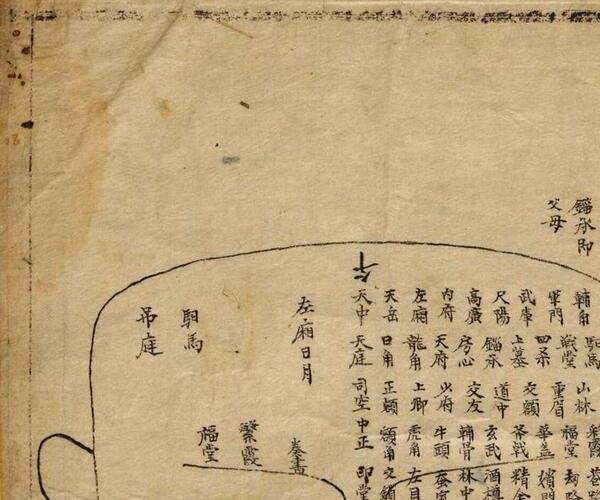 鎦承即
父母
輔角 駅馬 山林 彩霞 巷路
軍門 戰堂 重眉 福堂 劫路
武庫 四杀 交額 華蓋
尺陽 上墓 道中 斧戟 精舍
高廣 鎦承 交友 玄武 酒樽
内府 房心 少府 輔骨 林中
左廂 天府 上卿 牛頭 蚕室
天岳 龍角 正額 虎角 左目
天中 日角 司空 額角 交鎖
天庭 中正 印堂
左廂日月
奏書
繁霞
福堂
駅馬
吊庭